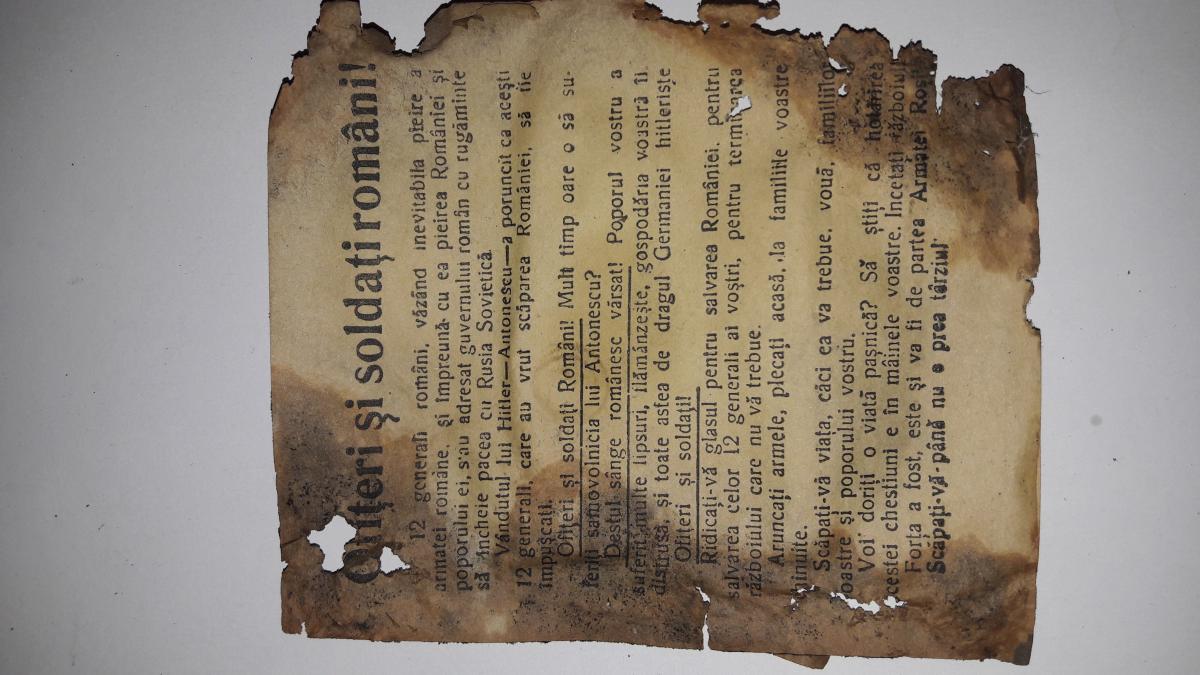 Ofițeri și soldați români!
12 generali români, văzând inevitabila pieire a
armatei române, și împreună cu ea pieirea României și
poporului ei, s'au adresat guvernului român cu rugăminte
să încheie pacea cu Rusia Sovietică.
Vândutul lui Hitler—Antonescu—a poruncit ca acești
12 generali, care au vrut scăparea României, să fie
împușcați.
Ofițeri și soldați Români! Mult timp oare o să su-
feriți samovolnicia lui Antonescu?
Destul sânge românesc vărsat! Poporul vostru a
suferit multe lipsuri, flămânzește, gospodăria voastră îi
distrusă, și toate astea de dragul Germaniei hitleriște
Ofițeri și soldați!
Ridicați-vă glasul pentru salvarea României, pentru
salvarea celor 12 generali ai voștri, pentru terminarea
războiului care nu vă trebue.
Aruncați armele, plecați acasă, la familiile voastre
chinuite.
Scăpați-vă viața, căci ea va trebue, vouă, familiilor
voastre și poporului vostru.
Voi doriți o viață pașnică? Să știți că hotărîrea
acestei chestiuni e în mâinele voastre. Încetați războiul!
Forța a fost, este și va fi de partea Armatei Roșii.
Scăpați-vă până nu e prea târziu!